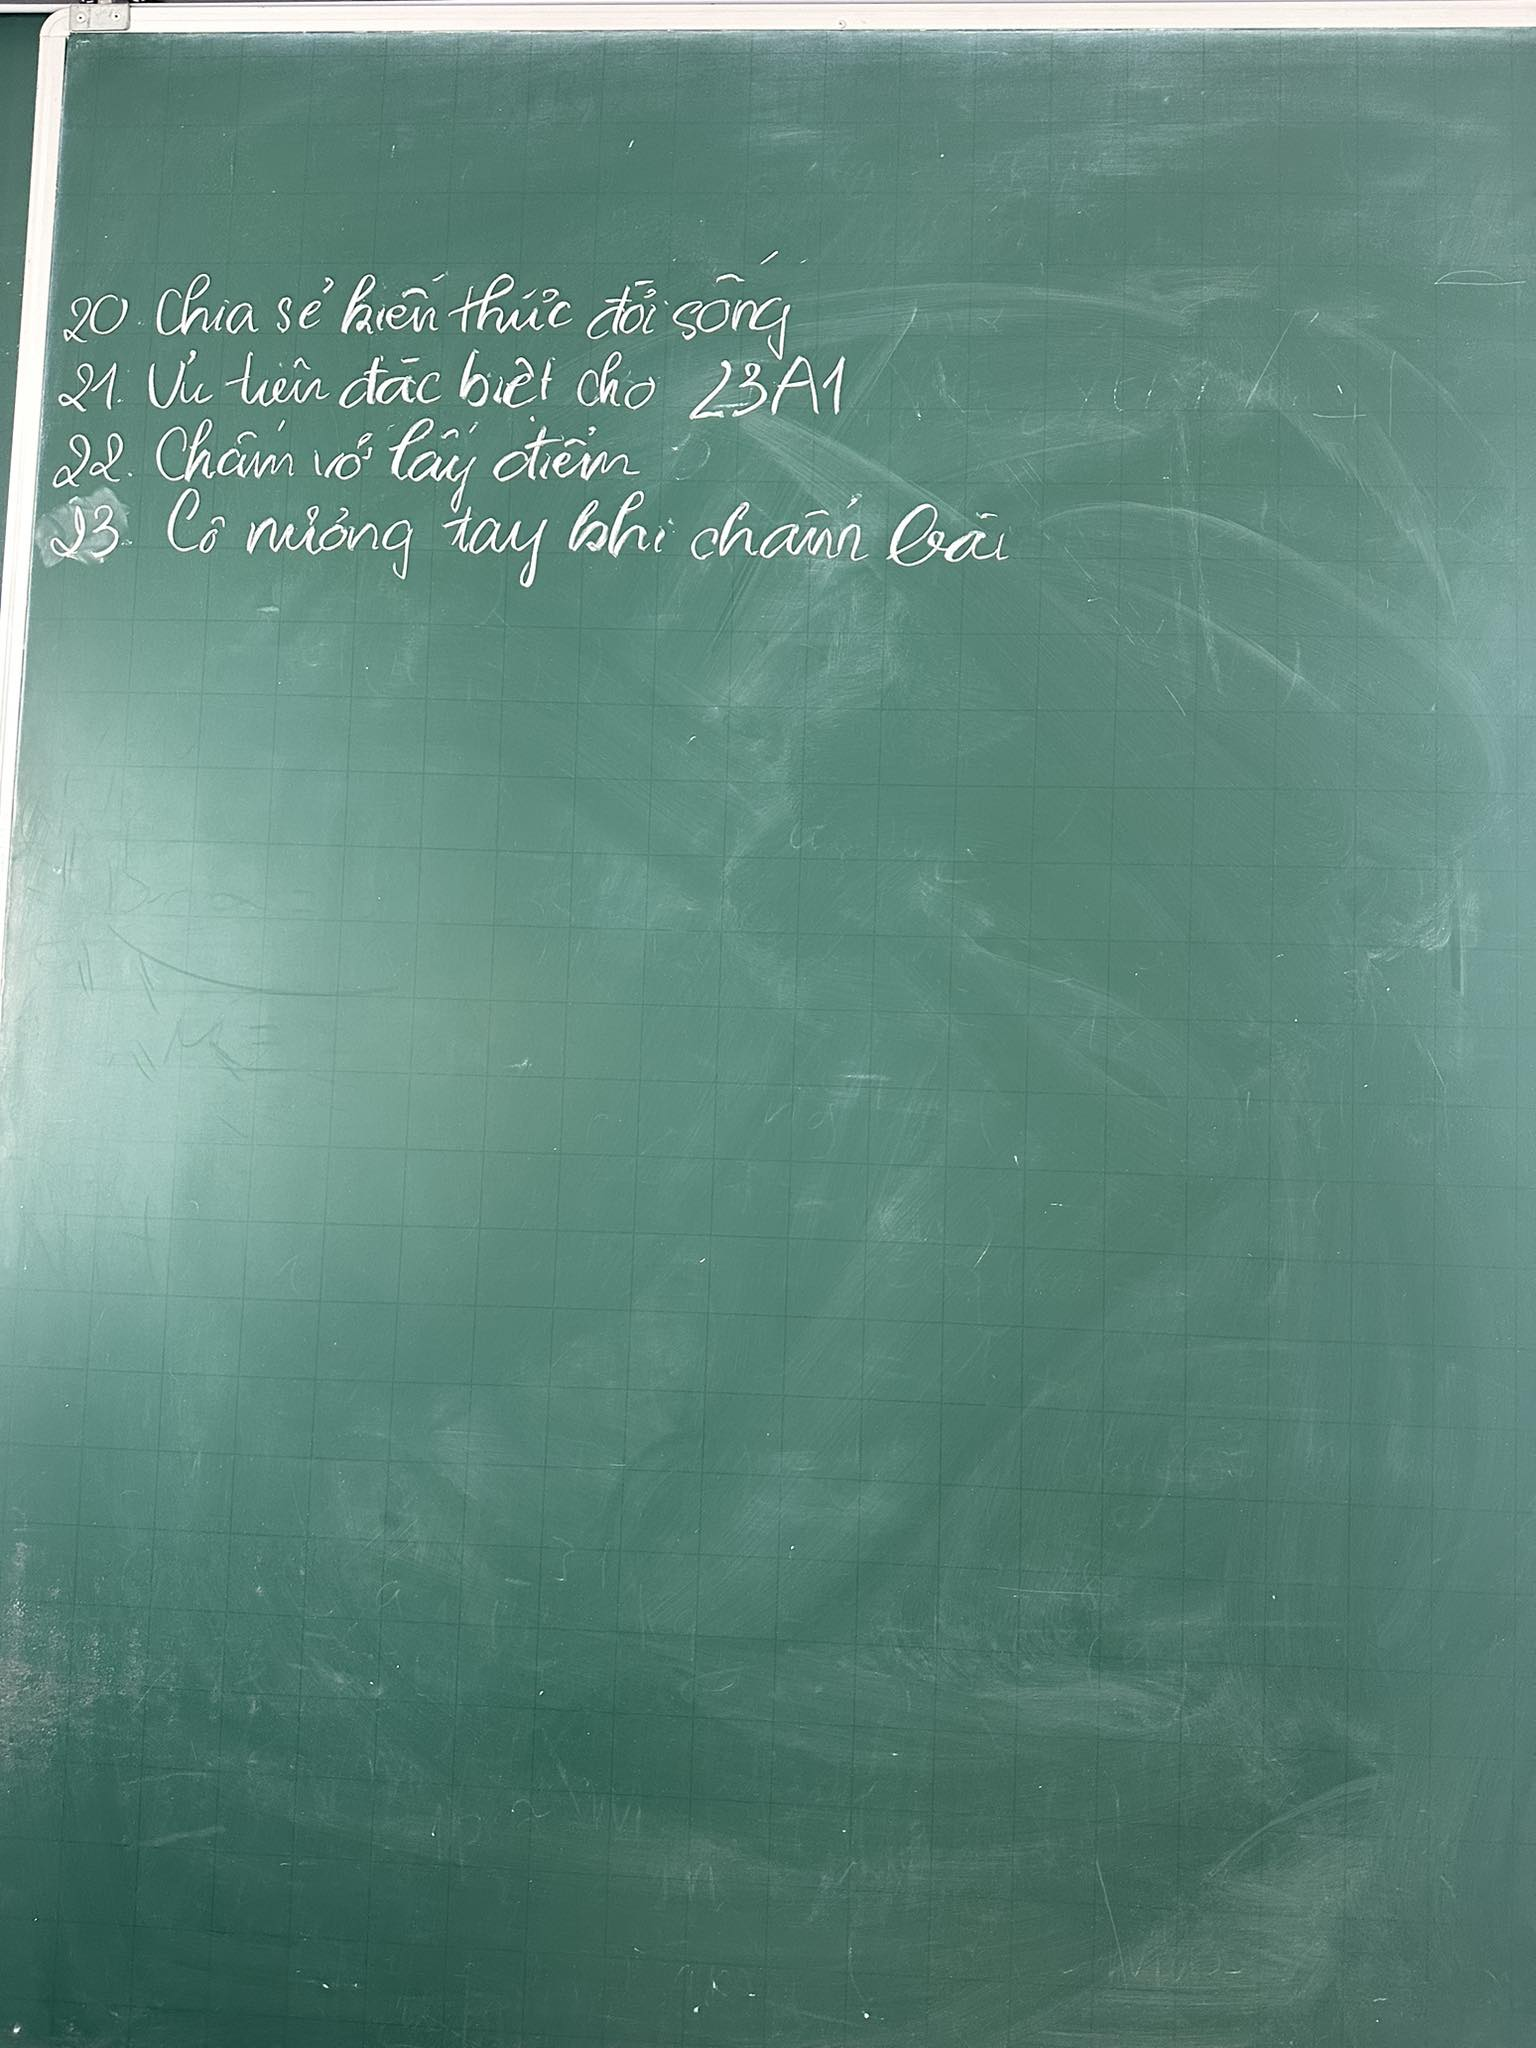 20. Chia sẻ kiến thức đời sống
21. Ưu tiên đặc biệt cho 23A1
22. Chấm vở lấy điểm
23. Cô nương tay khi chấm bài